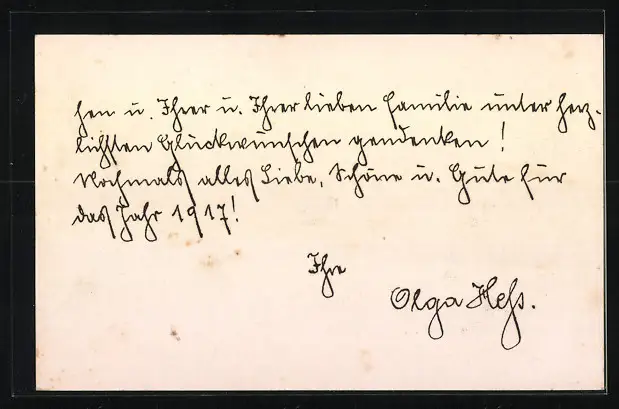 hen u. Ihrer u. Ihrer lieben Familie unter herz-
lichsten Glückwünschen gendenken!
Nochmals alles Liebe, Schöne u. Gute für
das Jahr 1917!
Ihre
Olga Hess.